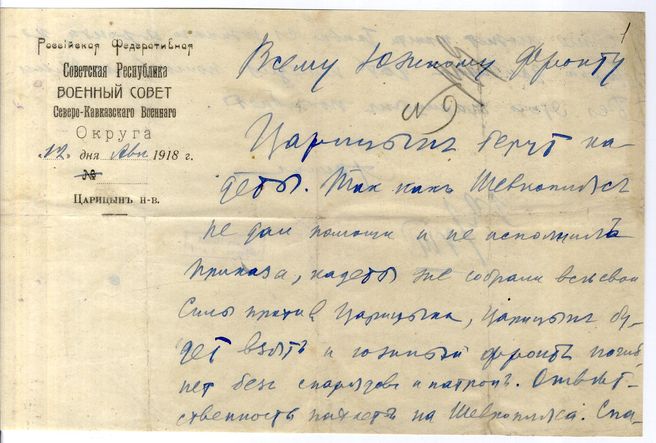 1
Россійская Федеративная
Советская Республика
ВОЕННЫЙ СОВЕТ
Северо-Кавказскаго Военнаго
Округа
дня 1918 г.
№
Царицынъ н-в.
Всему Южному фронту
Царицынъ берут ка-
деты. Так какъ Шевкоплясъ
не дал помощи и не исполнилъ
приказа, кадеты же собрали все свои
силы против Царицына, Царицынъ бу-
дет взятъ и южный фронтъ погиб-
нет без снарядов и патрон. Отвѣт-
ственность падает на Шевкопляса. Спа-